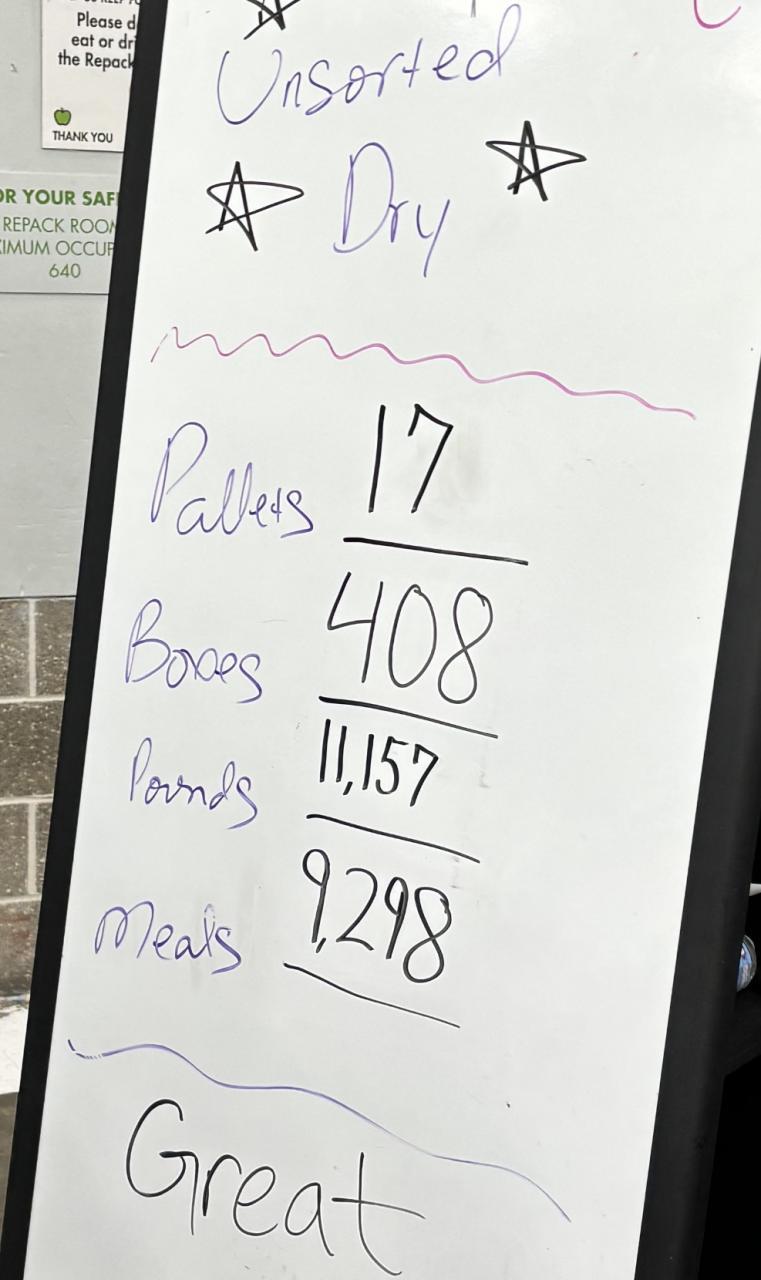 Please d
eat or dr
the Repack
THANK YOU
OR YOUR SAF
REPACK ROOM
XIMUM OCCUP
640
Unsorted
Dry
Pallets 17
Boxes 408
Pounds 11,157
Meals 9,298
Great